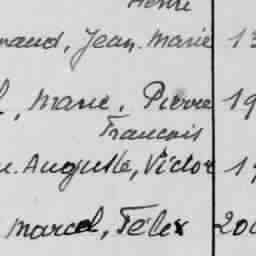 Henri
maud, Jean. Marie 13
, Marie, Pierre 19
Francois
. Auguste, Victor 19
Marcel, Felix 200